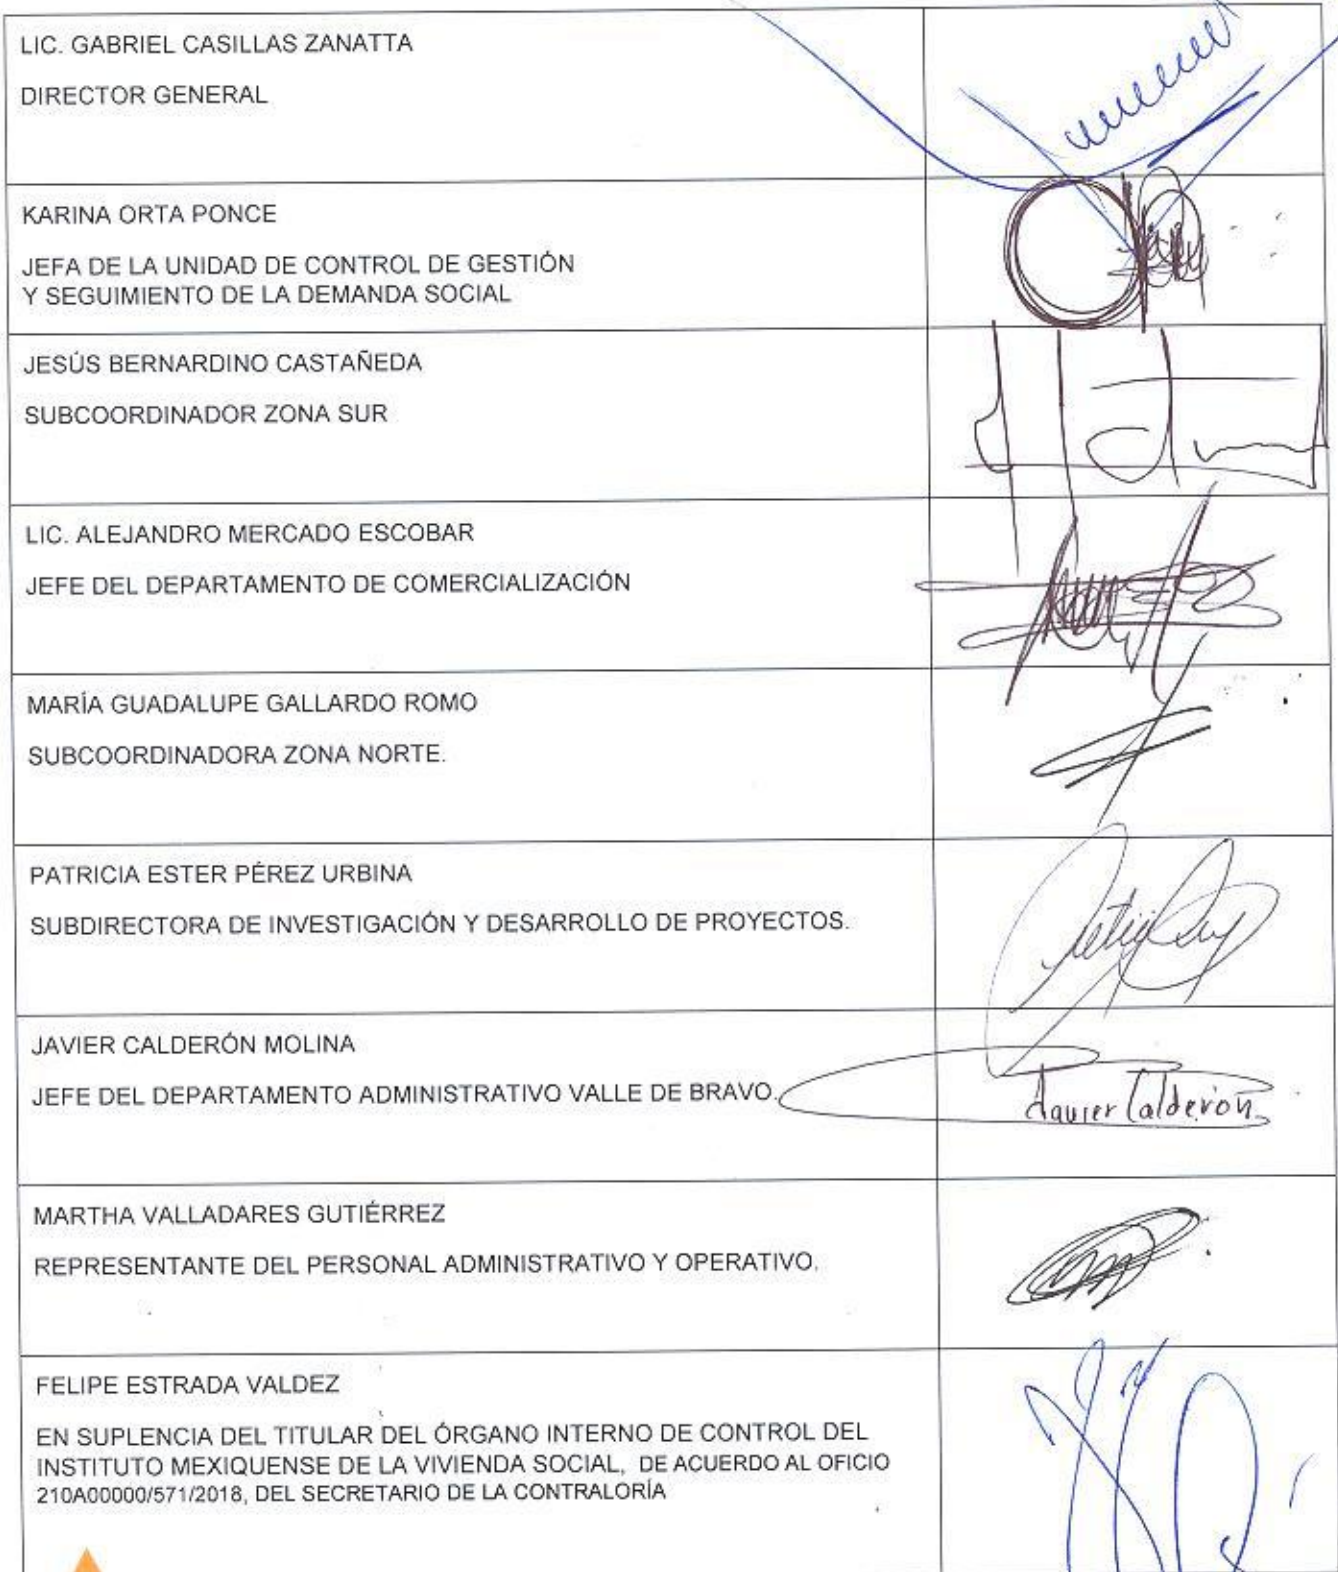 LIC. GABRIEL CASILLAS ZANATTA
DIRECTOR GENERAL
KARINA ORTA PONCE
JEFA DE LA UNIDAD DE CONTROL DE GESTIÓN
Y SEGUIMIENTO DE LA DEMANDA SOCIAL
JESÚS BERNARDINO CASTAÑEDA
SUBCOORDINADOR ZONA SUR
LIC. ALEJANDRO MERCADO ESCOBAR
JEFE DEL DEPARTAMENTO DE COMERCIALIZACIÓN
MARÍA GUADALUPE GALLARDO ROMO
SUBCOORDINADORA ZONA NORTE.
PATRICIA ESTER PÉREZ URBINA
SUBDIRECTORA DE INVESTIGACIÓN Y DESARROLLO DE PROYECTOS.
JAVIER CALDERÓN MOLINA
JEFE DEL DEPARTAMENTO ADMINISTRATIVO VALLE DE BRAVO.
Javier Calderón
MARTHA VALLADARES GUTIÉRREZ
REPRESENTANTE DEL PERSONAL ADMINISTRATIVO Y OPERATIVO.
FELIPE ESTRADA VALDEZ
EN SUPLENCIA DEL TITULAR DEL ÓRGANO INTERNO DE CONTROL DEL
INSTITUTO MEXIQUENSE DE LA VIVIENDA SOCIAL, DE ACUERDO AL OFICIO
210A00000/571/2018, DEL SECRETARIO DE LA CONTRALORÍA